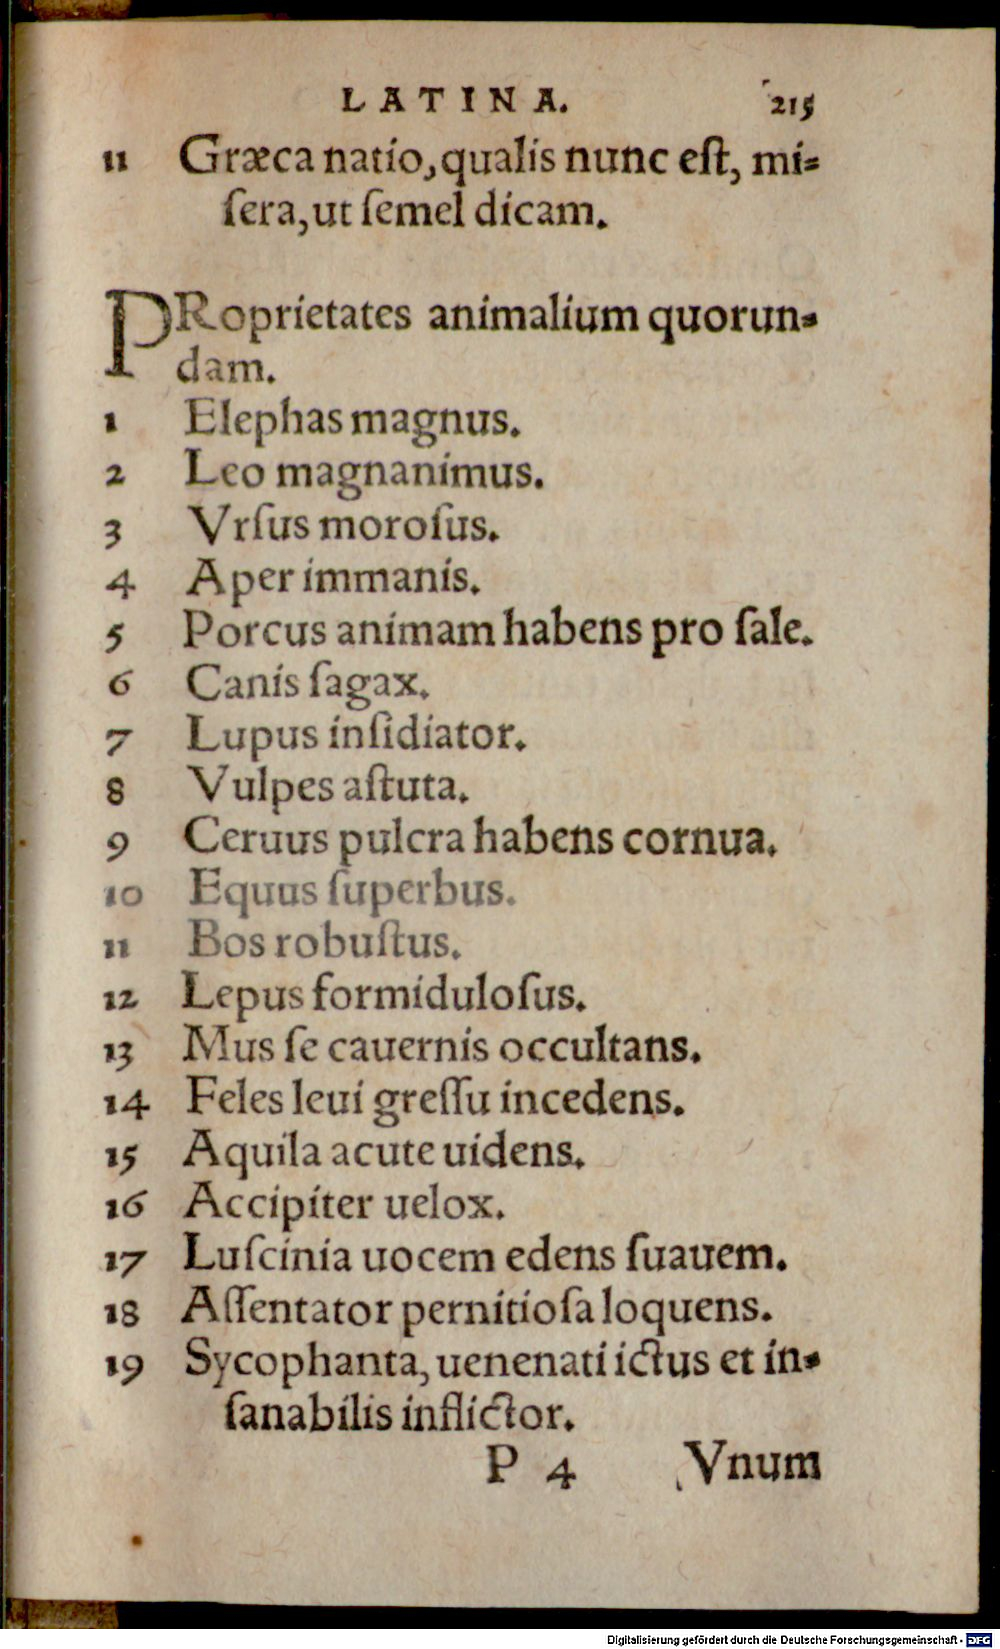 LATINA. 215
11 Græca natio, qualis nunc eſt, mi=
ſera, ut ſemel dicam.
PRoprietates animalium quorun=
dam.
1 Elephas magnus.
2 Leo magnanimus.
3 Vrſus moroſus.
4 Aper immanis.
5 Porcus animam habens pro ſale.
6 Canis ſagax.
7 Lupus inſidiator.
8 Vulpes aſtuta.
9 Ceruus pulcra habens cornua.
10 Equus ſuperbus.
11 Bos robuſtus.
12 Lepus formiduloſus.
13 Mus ſe cauernis occultans.
14 Feles leui greſſu incedens.
15 Aquila acute uidens.
16 Accipiter uelox.
17 Luſcinia uocem edens ſuauem.
18 Aſſentator pernitioſa loquens.
19 Sycophanta, uenenati ictus et in=
ſanabilis inflictor.
P 4 Vnum
Digitalisierung gefördert durch die Deutsche Forschungsgemeinschaft - DFG